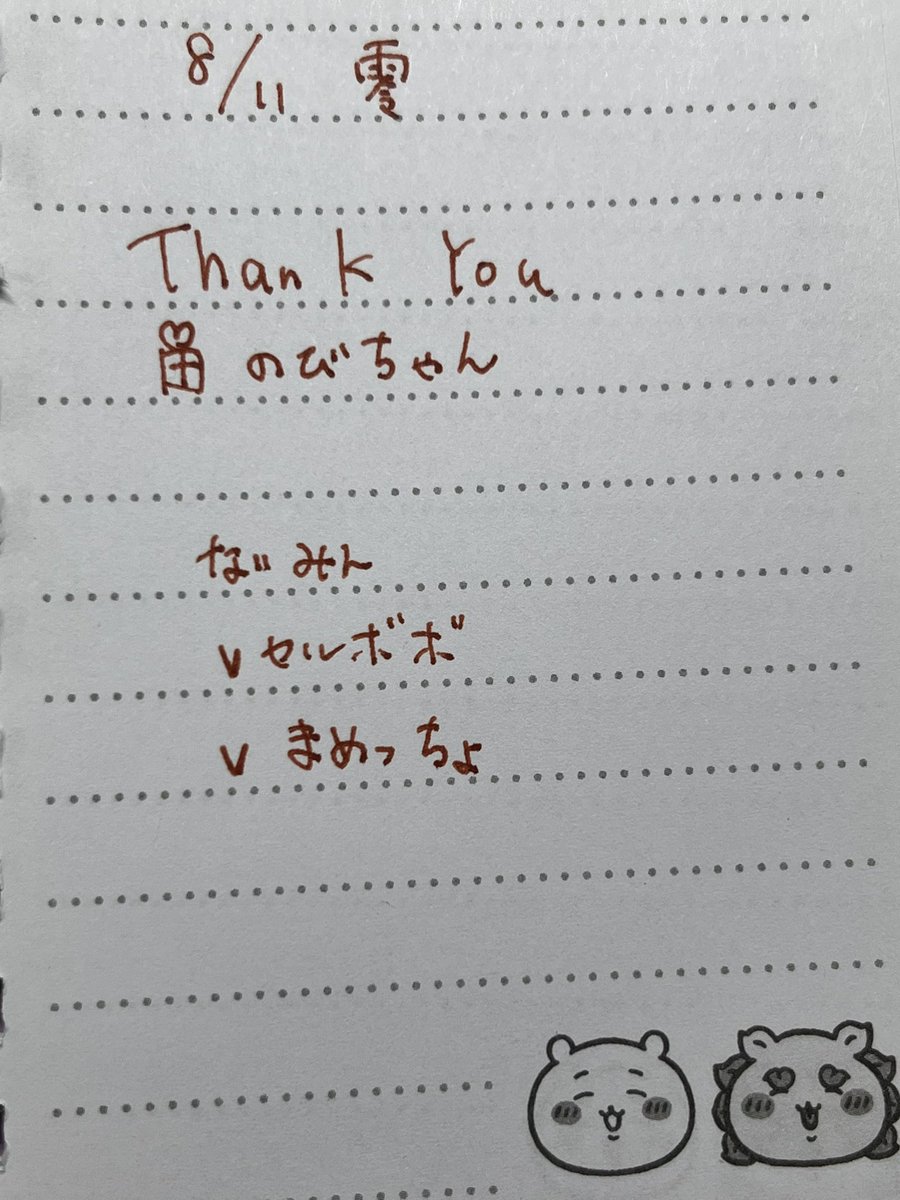 8/11 零
Thank You
のびちゃん
なじみん
v セルボボ
v まめっちょ